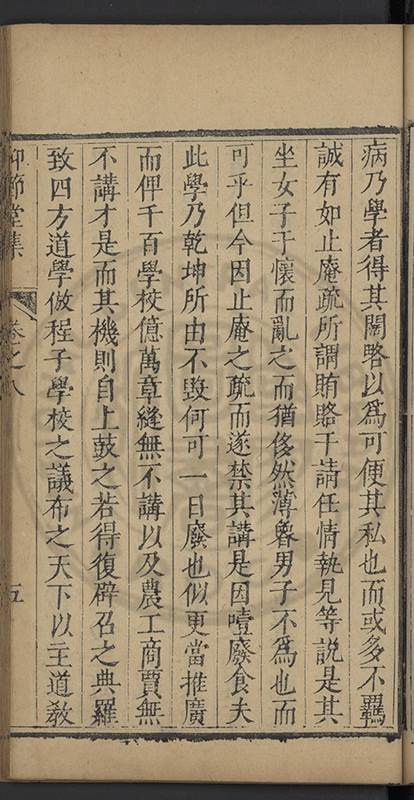 病乃學者得其闊略以爲可便其私也而或多不羈
誠有如止庵疏所謂賄賂干請任情執見等說是其
坐女子于懷而亂之而猶侈然薄魯男子不爲也而
可乎但今因止庵之疏而遂禁其講是因噎廢食夫
此學乃乾坤所由不毀何可一日廢也似更當推廣
而俾千百學校億萬章縫無不講以及農工商賈無
不講才是而其機則自上鼓之若得復辟召之典羅
致四方道學倣程子學校之議布之天下以主道敎
仰節堂集 卷之八 五